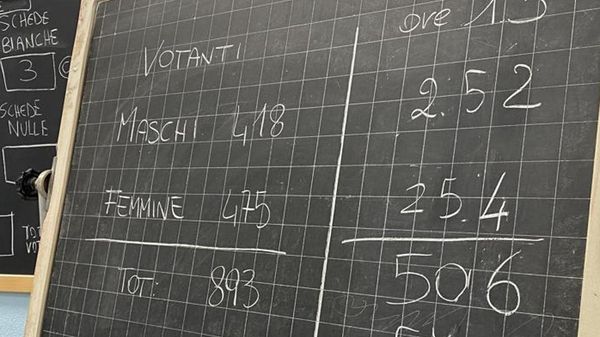 SCHEDE
BIANCHE
3
SCHEDE
NULLE
VOTANTI
MASCHI 418
FEMMINE 475
TOT: 893
ore 15
252
254
506